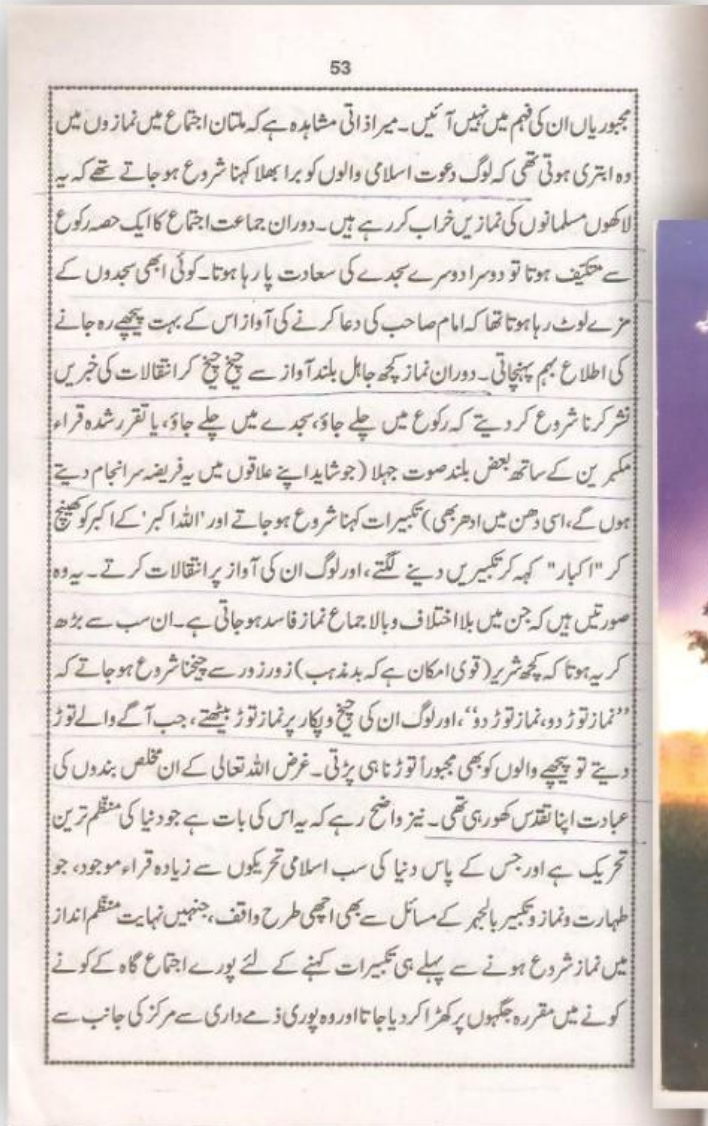 53
مجبوریاں ان کی فہم میں نہیں آئیں۔ میرا ذاتی مشاہدہ ہے کہ ملتان اجتماع میں نمازوں میں
وہ ابتری ہوتی تھی کہ لوگ دعوت اسلامی والوں کو برا بھلا کہنا شروع ہو جاتے تھے کہ یہ
لاکھوں مسلمانوں کی نمازیں خراب کر رہے ہیں۔ دوران جماعت اجتماع کا ایک حصہ رکوع
سے متکیف ہوتا تو دوسرا دوسرے سجدے کی سعادت پا رہا ہوتا۔ کوئی ابھی سجدوں کے
مزے لوٹ رہا ہوتا تھا کہ امام صاحب کی دعا کرنے کی آواز اس کے بہت پیچھے رہ جانے
کی اطلاع بہم پہنچاتی۔ دوران نماز کچھ جاہل بلند آواز سے چیخ چیخ کر انتقالات کی خبریں
نشر کرنا شروع کر دیتے کہ رکوع میں چلے جاؤ، سجدے میں چلے جاؤ، یا تقرر شدہ قراء
مکبرین کے ساتھ بعض بلند صوت جہلا (جو شاید اپنے علاقوں میں یہ فریضہ سرانجام دیتے
ہوں گے، اسی دھن میں ادھر بھی) تکبیرات کہنا شروع ہو جاتے اور 'اللہ اکبر' کے اکبر کو کھینچ
کر "اکبار" کہہ کر تکبیریں دینے لگتے، اور لوگ ان کی آواز پر انتقالات کرتے۔ یہ وہ
صورتیں ہیں کہ جن میں بلا اختلاف وبالا جماع نماز فاسد ہو جاتی ہے۔ ان سب سے بڑھ
کر یہ ہوتا کہ کچھ شریر (قوی امکان ہے کہ بد مذہب) زور زور سے چیخنا شروع ہو جاتے کہ
’’نماز توڑ دو، نماز توڑ دو‘‘، اور لوگ ان کی چیخ و پکار پر نماز توڑ بیٹھتے، جب آگے والے توڑ
دیتے تو پیچھے والوں کو بھی مجبوراً توڑنا ہی پڑتی۔ غرض اللہ تعالی کے ان مخلص بندوں کی
عبادت اپنا تقدس کھو رہی تھی۔ نیز واضح رہے کہ یہ اس کی بات ہے جو دنیا کی منظّم ترین
تحریک ہے اور جس کے پاس دنیا کی سب اسلامی تحریکوں سے زیادہ قراء موجود، جو
طہارت و نماز و تکبیر بالجہر کے مسائل سے بھی اچھی طرح واقف، جنہیں نہایت منظّم انداز
میں نماز شروع ہونے سے پہلے ہی تکبیرات کہنے کے لئے پورے اجتماع گاہ کے کونے
کونے میں مقررہ جگہوں پر کھڑا کر دیا جاتا اور وہ پوری ذمے داری سے مرکز کی جانب سے